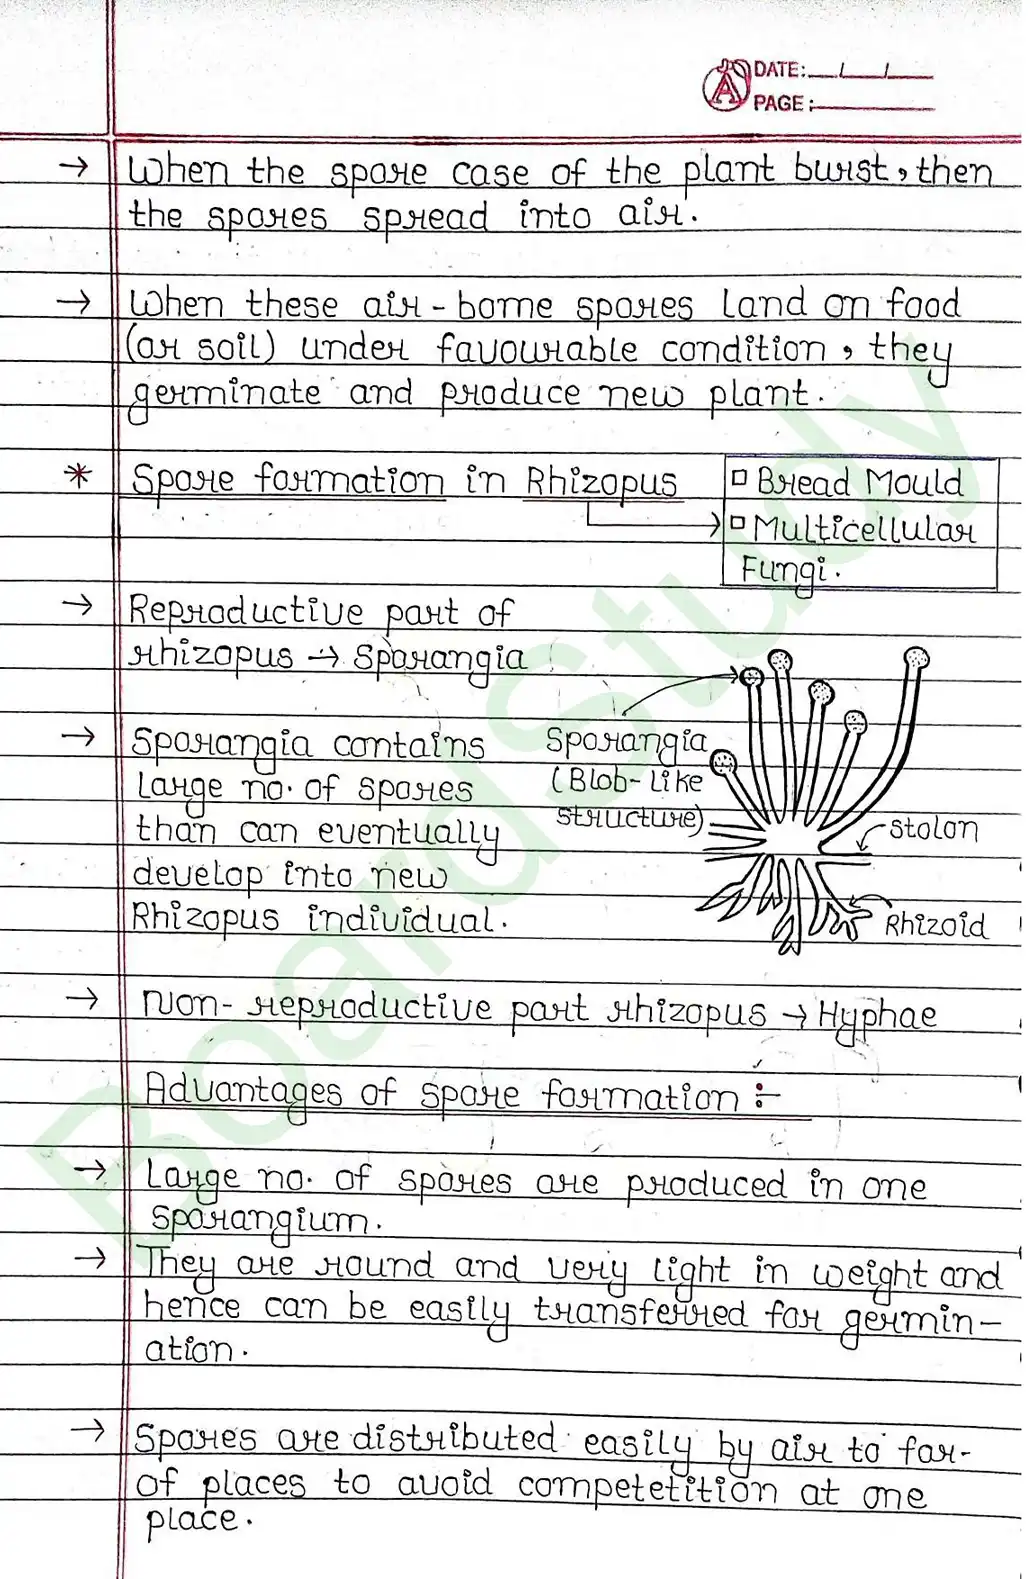 DATE: __/__/__
PAGE :
→ When the spore case of the plant burst, then
the spores spread into air.
→ When these air-borne spores land on food
(or soil) under favourable condition, they
germinate and produce new plant.
* Spore formation in Rhizopus
□ Bread Mould
□ Multicellular
Fungi.
→ Reproductive part of
rhizopus → Sporangia
→ Sporangia contains
large no. of spores
than can eventually
develop into new
Rhizopus individual.
Sporangia
(Blob-like
structure)
Stolon
Rhizoid
→ Non-reproductive part rhizopus → Hyphae
Advantages of spore formation :-
→ Large no. of spores are produced in one
sporangium.
→ They are round and very light in weight and
hence can be easily transferred for germin-
ation.
→ Spores are distributed easily by air to far-
of places to avoid competetition at one
place.
BoardStudy